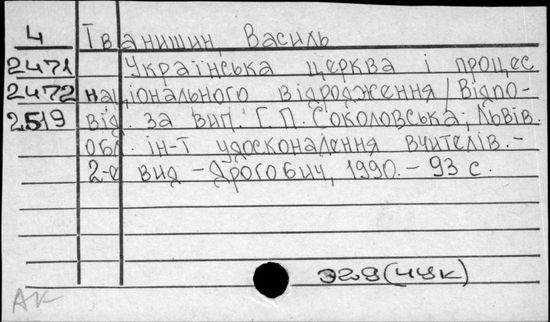 4 Іванишин, Василь
2471 Українська церква і процес
2472 національного відродження / Відпо-
2519 від. за вип. Г. П. Соколовська; Львів.
обл. ін-т удосконалення вчителів. -
2-е вид - Дрогобич, 1990. - 93 с.
Э2g(4Ук)
АК